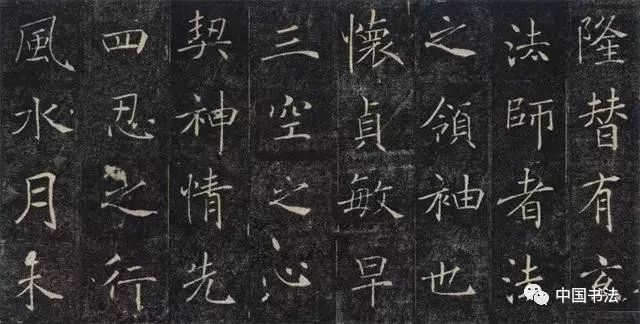 隆替有玄
法師者法
之領袖也
懷貞敏早
三空之心
契神情先
四忍之行
風水月未
中国书法